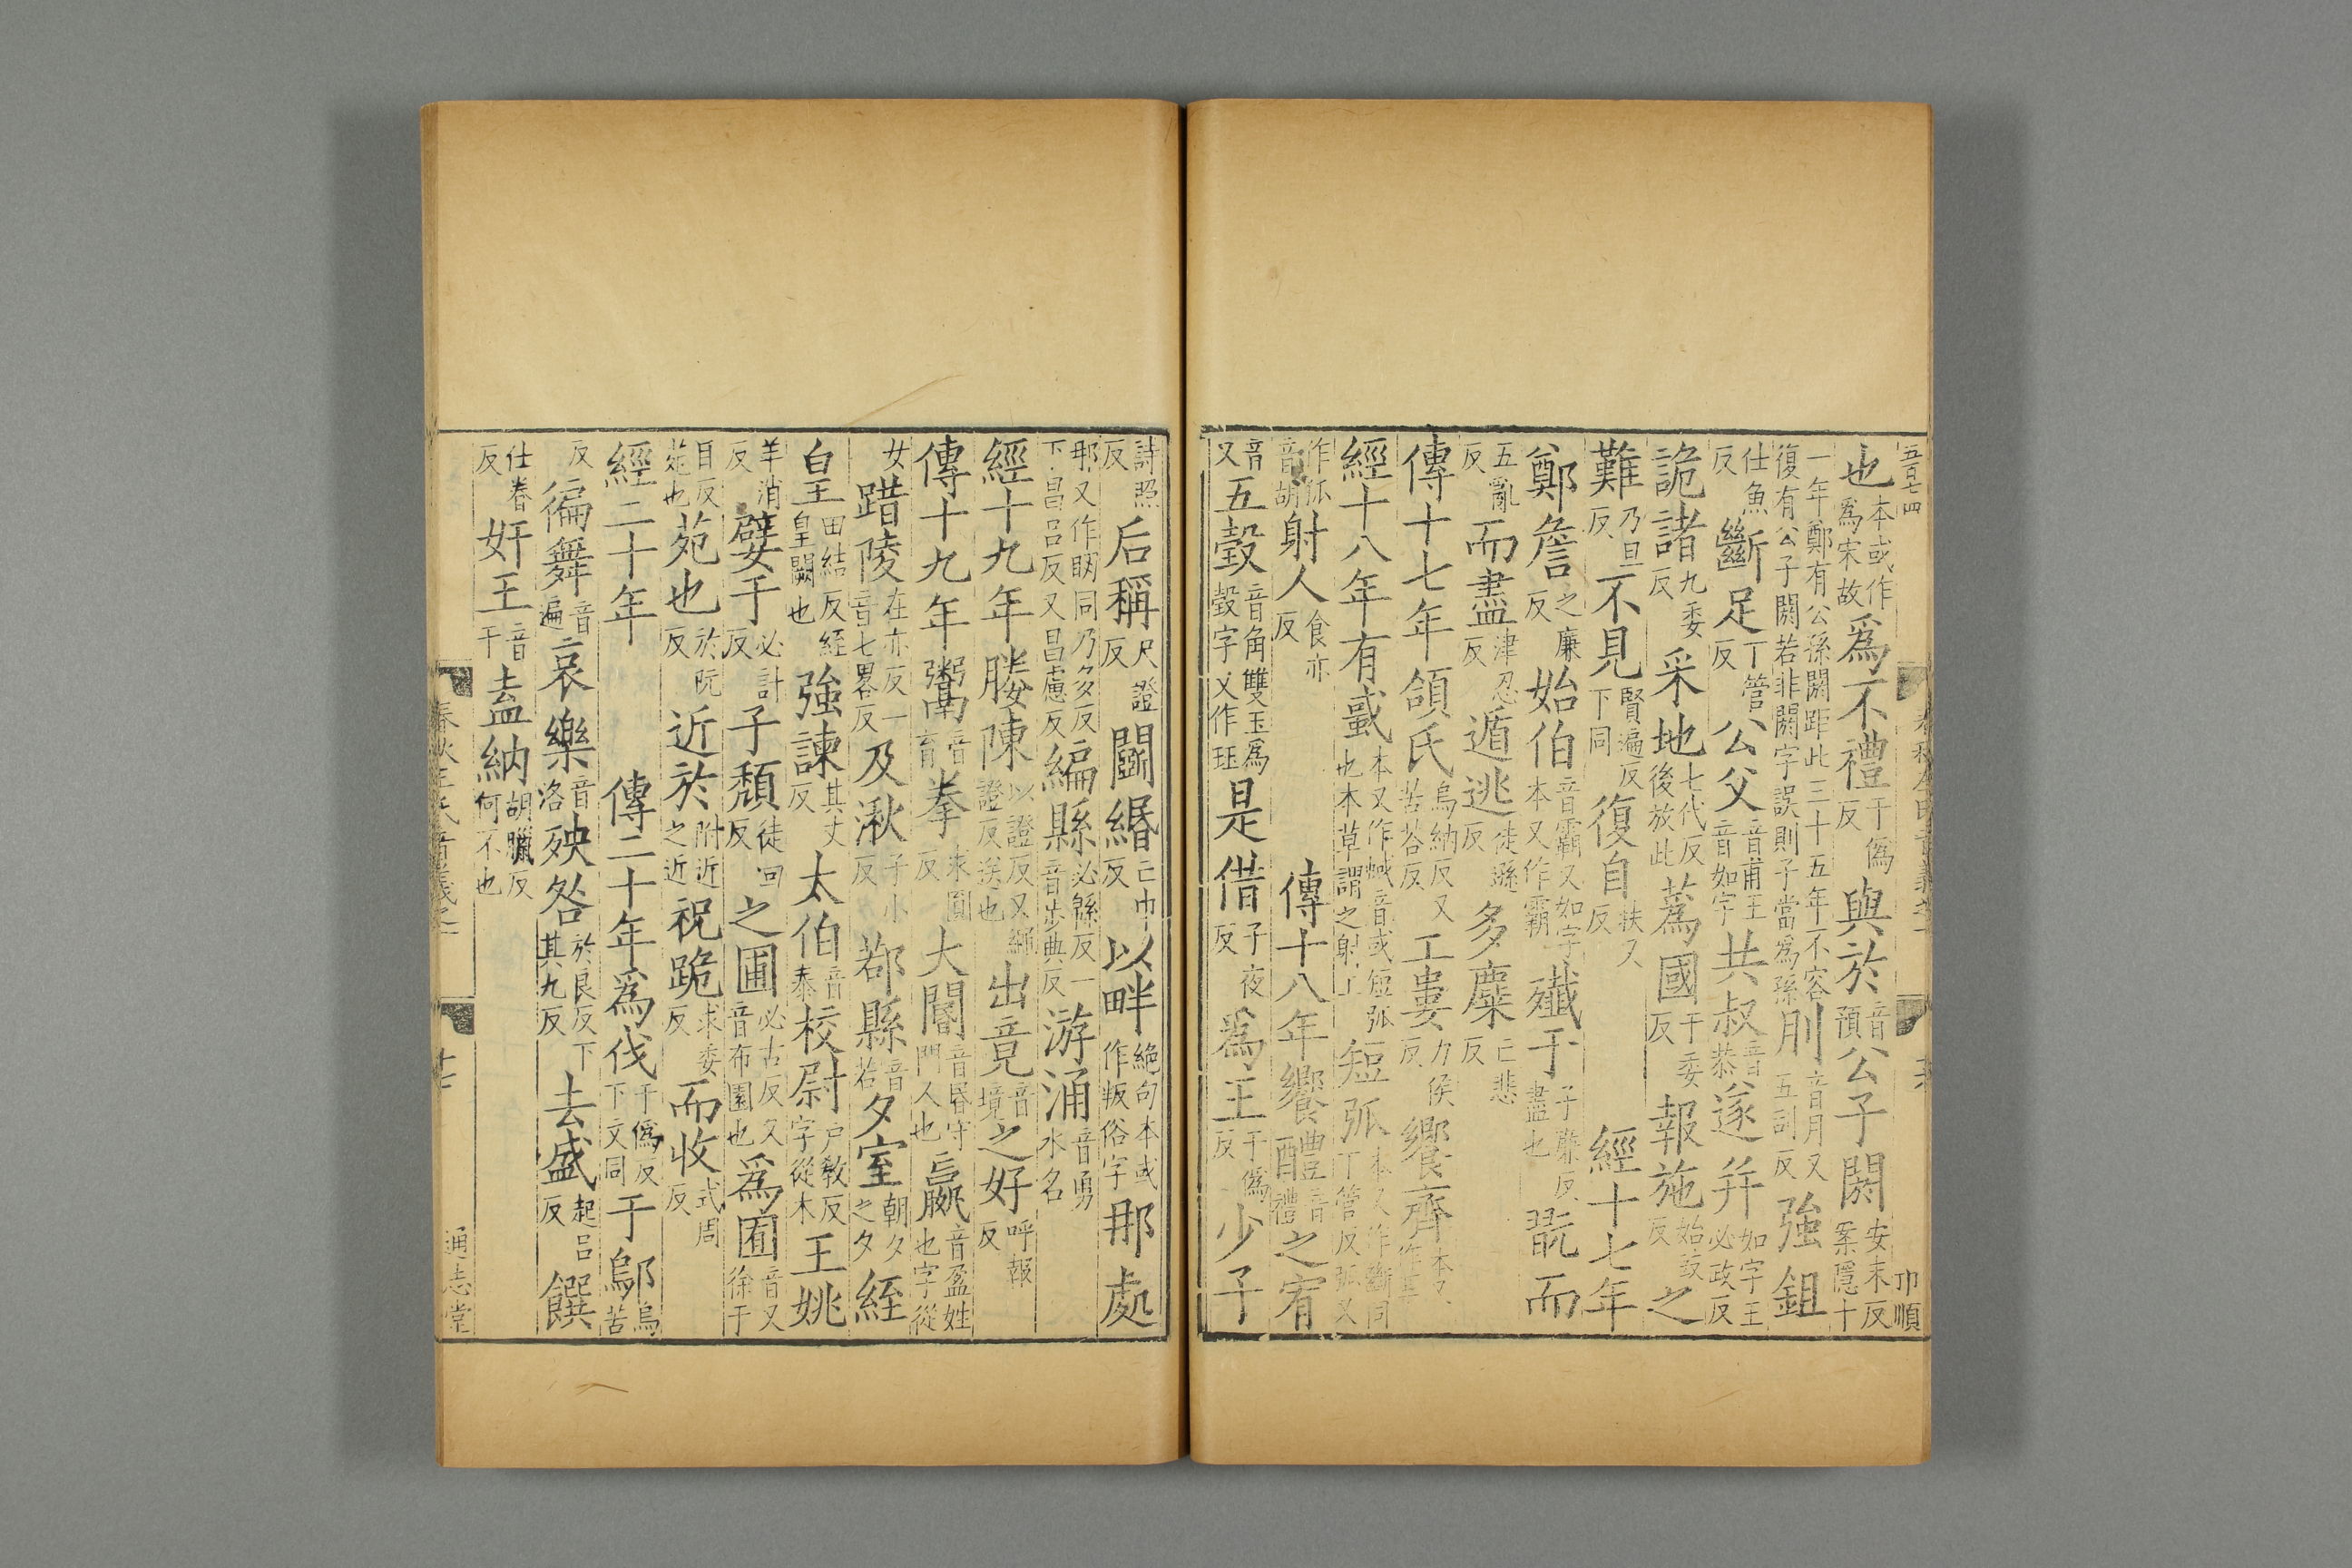 也本或作爲宋故爲不禮于僞反與於音預公子閼安末反案隱十
一年鄭有公孫閼距此三十五年不容復有公子閼若非閼字誤則子當爲孫刖音月又五刮反強鉏
仕魚反斷足丁管反公父音甫王音如字共叔音恭遂并如字王必政反
詭諸九委反采地七代反後放此蒍國于委反報施始豉反之
難乃旦反不見賢遍反下同復自扶又反經十七年
鄭詹之廉反始伯音霸又如字本又作霸殲于子廉反盡也翫而
五亂反而盡津忍反遁逃徒遜反多麋亡悲反
傳十七年頜氏烏納反又苦荅反工婁力侯反饗齊本又作享
經十八年有蜮本又作蜮音或短弧也本草謂之射工短弧本又作斷同丁管反弧又
作狐音胡射人食亦反傳十八年饗醴音禮之宥
音又五瑴音角雙玉爲瑴字又作珏是借子夜反爲王于僞反少子
詩照反后稱尺證反鬬緡亡巾反以畔絶句本或作叛俗字那處
那又作䎡同乃多反下昌呂反又昌慮反編縣必緜反一音步典反游涌音勇水名
經十九年媵陳以證反又繩證反送也出竟音境之好呼報反
傳十九年鬻音育拳求圓反大閽音昏守門人也嬴音盈姓也字從
女踖陵在亦反一音七畧反及湫子小反鄀縣音若夕室朝夕之夕絰
皇田結反絰皇闕也強諫其丈反太伯音泰校尉户敎反字從木王姚
羊消反嬖于必計反子頽徒回反之圃必古反又音布園也爲囿音又徐于
目反苑也苑也於阮反近於附近之近祝跪求委反而收式周反
經二十年傳二十年爲伐于僞反下文同于鄔烏苦
反徧舞音遍哀樂音洛殃咎於良反下其九反去盛起呂反饌
仕眷反奸王音干盍納胡臘反何不也
通志堂